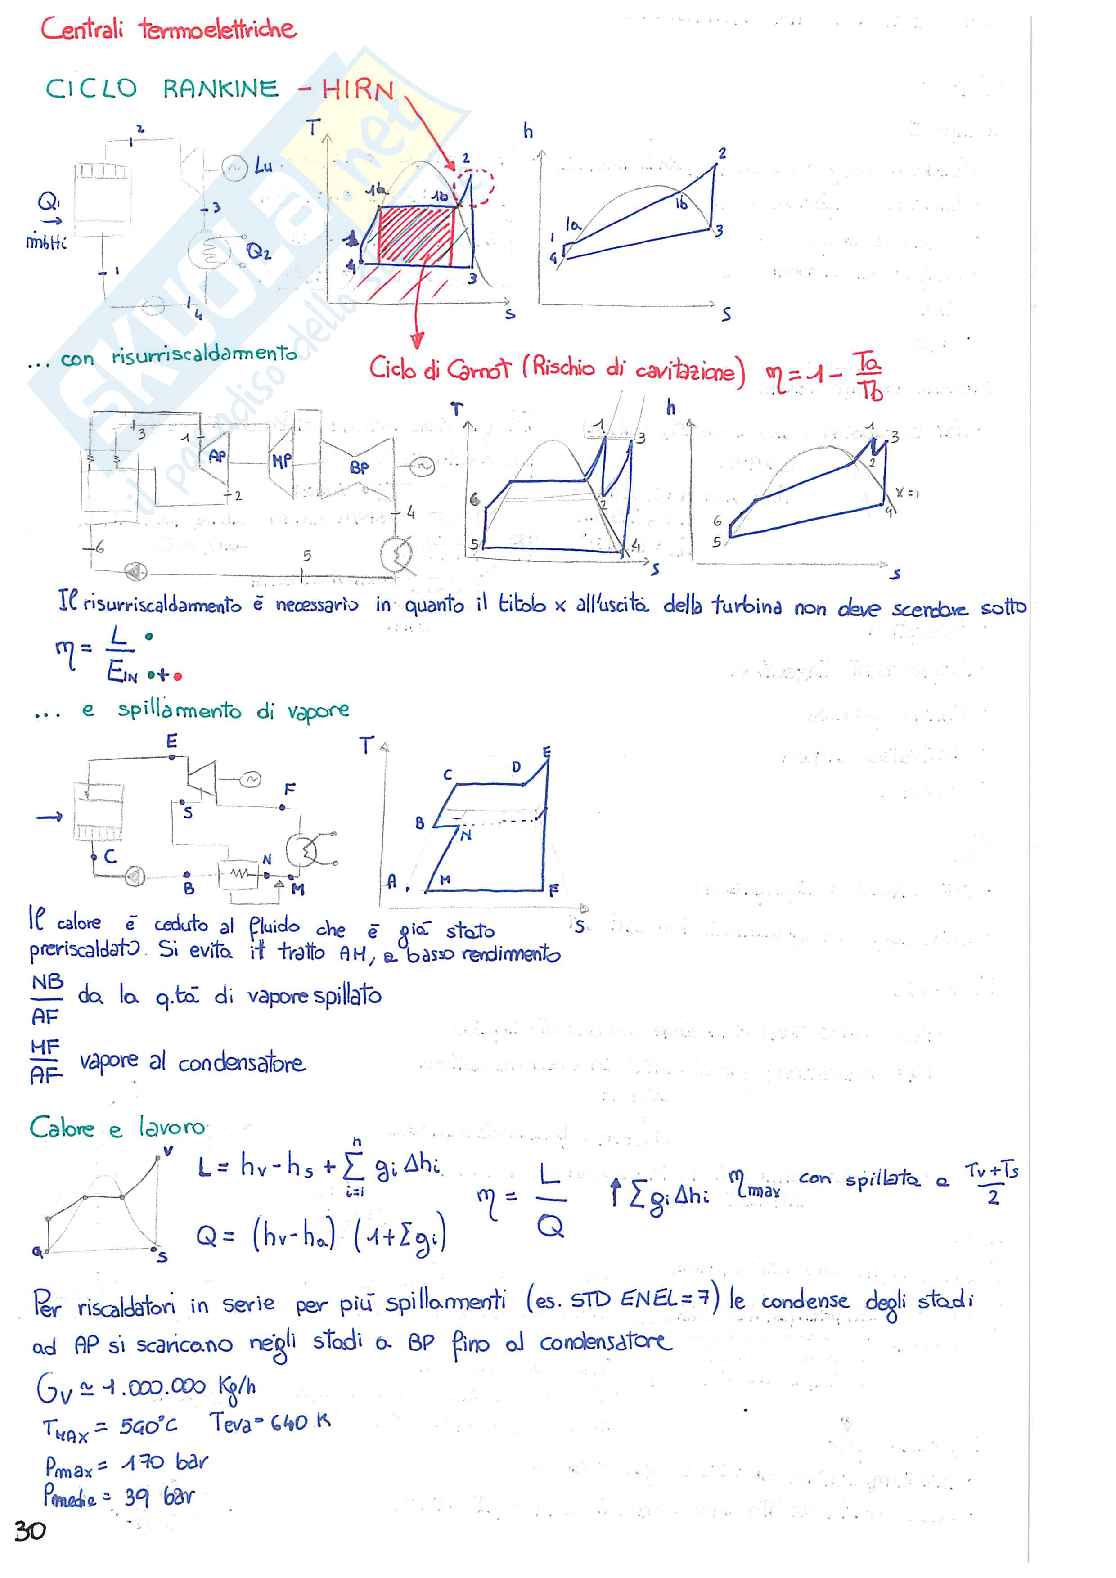 Centrali termoelettriche
CICLO RANKINE - HIRN
2
T
h
Lu
Q1
immetti
3
Q2
1
4
2
1a
1b
1
4
3
s
2
1b
1a
1
4
3
s
... con risurriscaldamento
Ciclo di Carnot (Rischio di cavitazione) η = 1 - Ta/Tb
3
1
AP
MP
BP
2
4
5
6
T
1
3
6
2
5
4
s
h
1
3
2
x=1
4
6
5
s
Il risurriscaldamento è necessario in quanto il titolo x all'uscita della turbina non deve scendere sotto
η = L/EIN
+
... e spillamento di vapore
E
S
F
C
B
N
M
T
E
C
D
B
N
A
M
F
s
Il calore è ceduto al fluido che è già stato
preriscaldato. Si evita il tratto AM, a basso rendimento
NB/AF da la q.tà di vapore spillato
MF/AF vapore al condensatore
Calore e lavoro
V
a
S
L = hv - hs + Σ i=1 n gi Δhi
Q = (hv - ha) (1 + Σgi)
η = L/Q
↑ Σ gi Δhi ηmax con spillata a Tv+Ts/2
Per riscaldatori in serie per più spillamenti (es. STD ENEL = 7) le condense degli stadi
ad AP si scaricano negli stadi a BP fino al condensatore
Gv ≃ 1.000.000 Kg/h
TMAX = 540°C Teva = 640 K
Pmax = 170 bar
Pmedia = 39 bar
30
SKUOLA.net
il paradiso dello